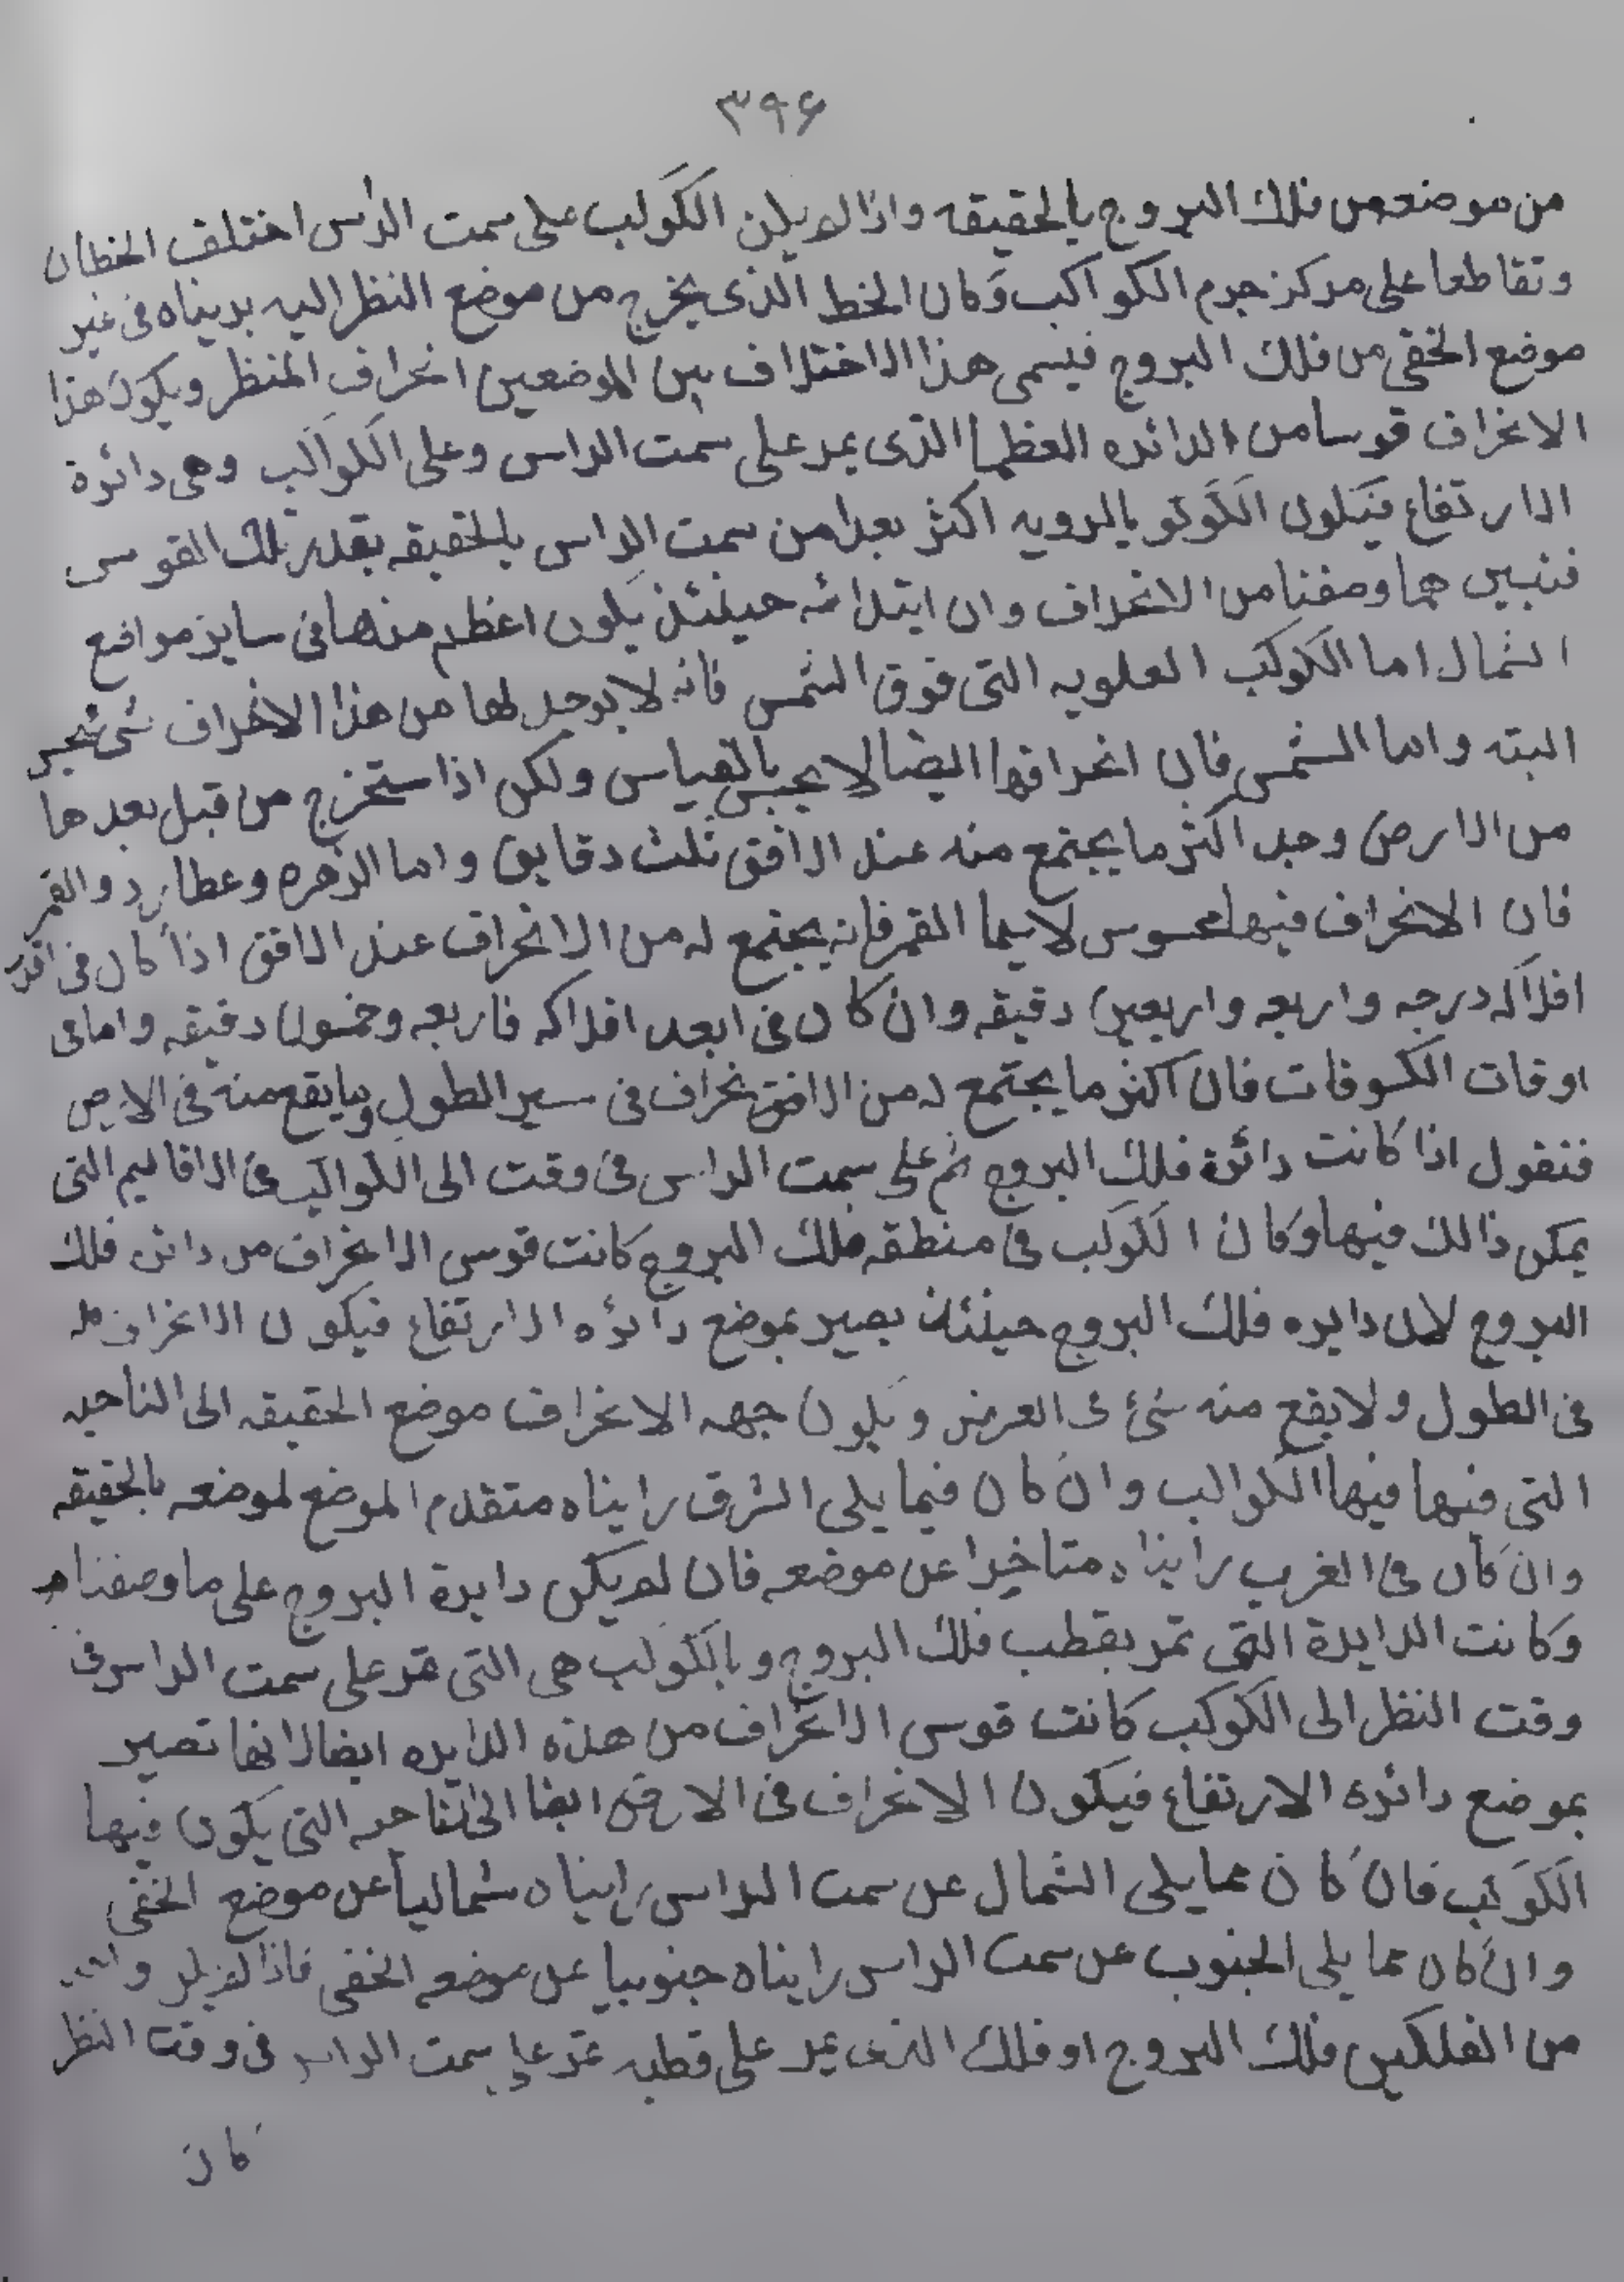 ٣٩۶
من موضعه من فلك البروج بالحقيقه واذا لم يكن الكوكب على سمت الراس اختلف الخطان
وتقاطعا على مركز جرم الكواكب وكان الخط الذى يخرج من موضع النظر اليه برينا‌ه فى غير
موضع الخفى من فلك البروج فيسمى هذا الاختلاف بين الموضعين انحراف المنظر ويكون هذا
الانحراف قوسا من الدائره العظما الذى يمر على سمت الراس وعلى الكواكب وهى دائرة
الارتفاع فيكون بالرويه اكثر بعدا من سمت الراس بالحقيقه بقدر تلك القوس
فتبين مما وصفنا من الانحراف وان ابتدائه حينئذ يكون اعظم منها فى ساير مواضع
الشمال اما الكوكب العلويه التى فوق الشمس فانه لا يوجد لها من هذا الانحراف شى
البته واما الشمس فان انحرافها ايضا لا يحس بالقياس ولكن اذا ستخرج من قبل بعدها
من الارض وجد اكثر ما يجتمع منه عند الافق ثلث دقايق واما الزهره وعطارد والقمر
فان الانحراف فيها محسوس لا سيما القمر فانه يجتمع له من الانحراف عند الافق اذا كان فى اقرب
افلاكه درجه واربعه واربعين دقيقه وان كان فى ابعد افلاكه فاربعه وخمسون دقيقه واما فى
اوقات الكسوفات فان اكثر ما يجتمع له من فى سير الطول وما يقع منه فى
فنقول اذا كانت دائرة فلك البروج تمر على سمت الراس فى وقت الى الكواكب فى الاقاليم التى
يمكن ذالك فيها وكان الكوكب فى منطقه فلك البروج كانت قوس الانحراف من دائره فلك
البروج لان دايره فلك البروج حينئذ يصير بموضع دائره الارتفاع فيكون الانحراف كله
فى الطول ولا يقع منه شئ فى العرض ويكون جهه الانحراف موضع الحقيقه الى الناحيه
التى فيها فيها الكواكب وان كان فيما يلى الشرق رايناه متقدم الموضع لموضعه بالحقيقه
وان كان فى الغرب رايناه متاخيرا عن موضعه فان لم يكن دايرة البروج على ما وصفنا
وكانت الدايرة التى تمر بقطب فلك البروج وبالكوكب هى التى تمر على سمت الراس فى
وقت النظر الى الكوكب كانت قوس الانحراف من هذه الدايره ايضا لانها تصير
بموضع دائره الارتفاع فيكون الانحراف فى ايضا الى التى يكون فيها
الكوكب فان كان مما يلى الشمال عن سمت الراس رايناه شماليا عن موضع الخفى
وان كان مما يلى الجنوب عن سمت الراس رايناه جنوبيا عن موضعه الخفى فاذا لم يكن
من الفلكين فلك البروج او فلك الذى يمر على قطبه تمر على سمت الراس فى وقت النظر
كان